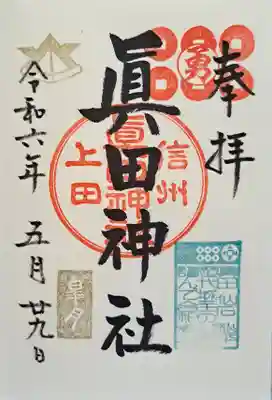 奉拝
勇
眞田神社
信州
上田
眞田神社
令和六年 五月廿九日
皐月